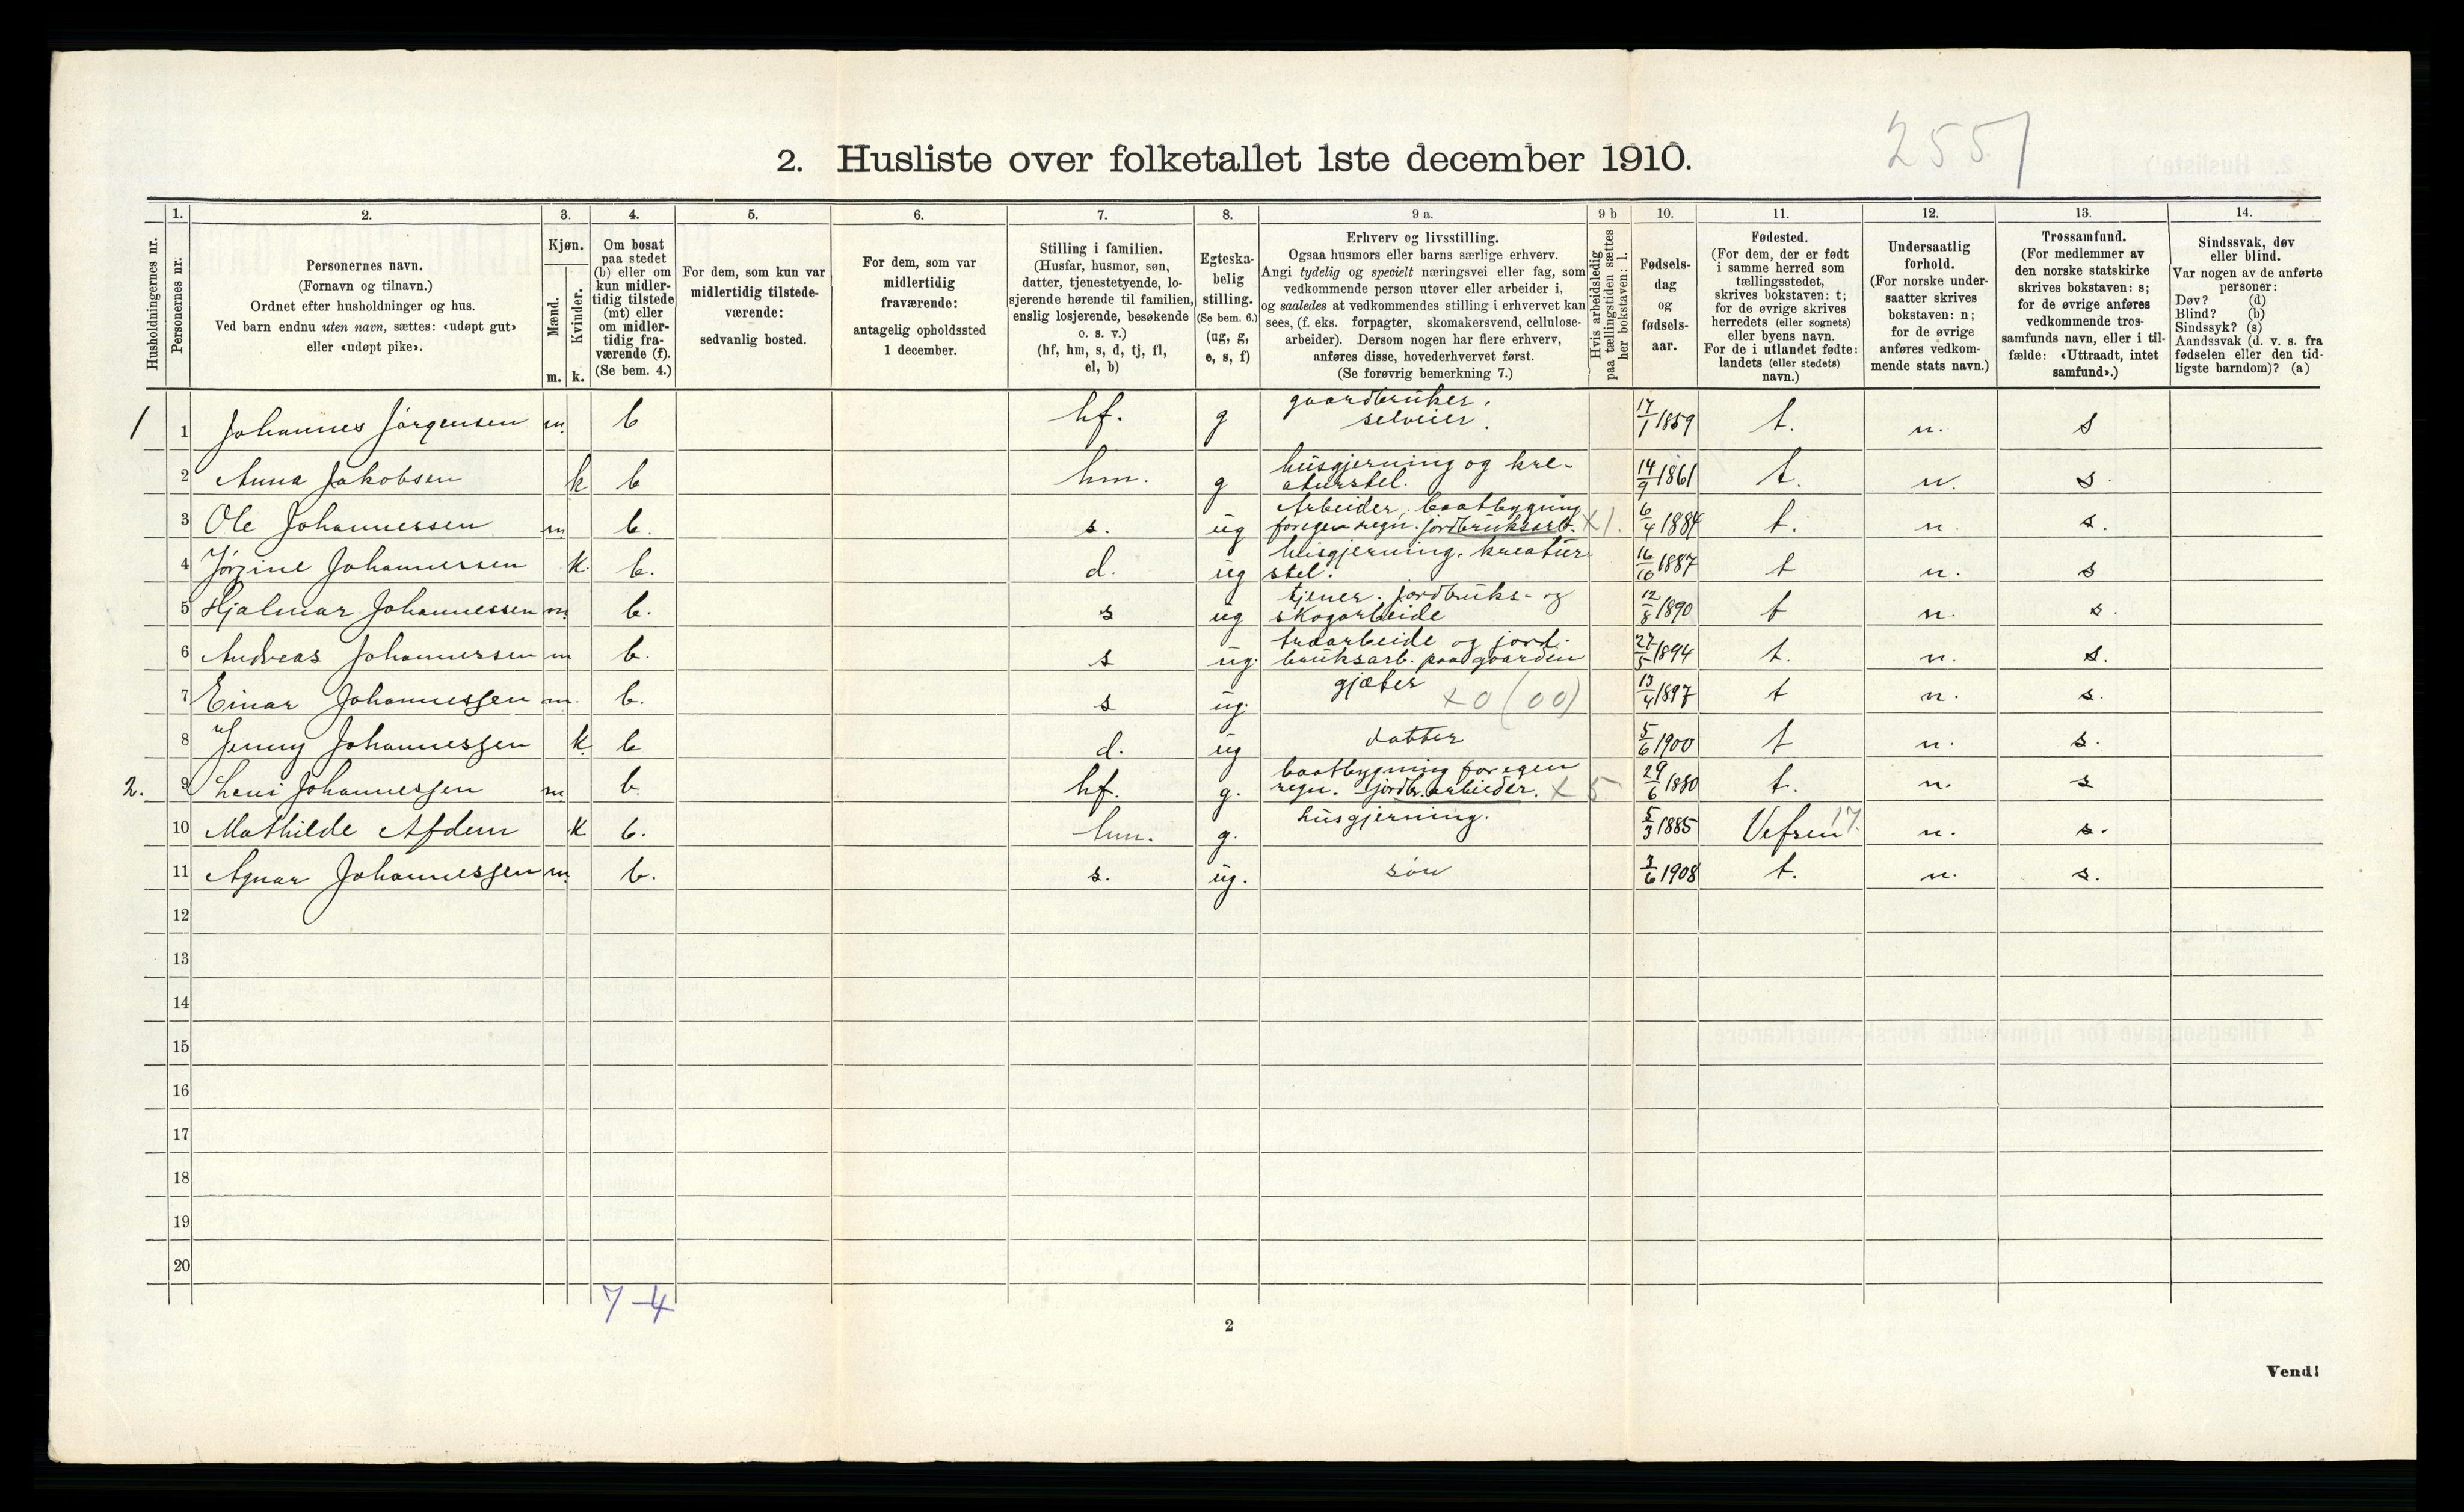 2551
2. Husliste over folketallet 1ste december 1910.
Husholdningernes nr.
1.
Personernes nr.
2.
Personernes navn.
(Fornavn og tilnavn.)
Ordnet efter husholdninger og hus.
Ved barn endnu uten navn, sættes: «udøpt gut»
eller «udøpt pike».
3.
Kjøn.
Mænd.
Kvinder.
m. k.
4.
Om bosat
paa stedet
(b) eller om
kun midler-
tidig tilstede
(mt) eller
om midler-
tidig fra-
værende (f).
(Se bem. 4.)
5.
For dem, som kun var
midlertidig tilstede-
værende:
sedvanlig bosted.
6.
For dem, som var
midlertidig
fraværende:
antagelig opholdssted
1 december.
7.
Stilling i familien.
(Husfar, husmor, søn,
datter, tjenestetyende, lo-
sjerende hørende til familien,
enslig losjerende, besøkende
o. s. v.)
(hf, hm, s, d, tj, fl,
el, b)
8.
Egteska-
belig
stilling.
(Se bem. 6.)
(ug, g,
e, s, f)
9 a.
Erhverv og livsstilling.
Ogsaa husmors eller barns særlige erhverv.
Angi tydelig og specielt næringsvei eller fag, som
vedkommende person utøver eller arbeider i,
og saaledes at vedkommendes stilling i erhvervet kan
sees, (f. eks. forpagter, skomakersvend, cellulose-
arbeider). Dersom nogen har flere erhverv,
anføres disse, hovederhvervet først.
(Se forøvrig bemerkning 7.)
9 b
Hvis arbeidsledig
paa tællingstiden sættes
her bokstaven: l.
10.
Fødsels-
dag
og
fødsels-
aar.
11.
Fødested.
(For dem, der er født
i samme herred som
tællingsstedet,
skrives bokstaven: t;
for de øvrige skrives
herredets (eller sognets)
eller byens navn.
For de i utlandet fødte:
landets (eller stedets)
navn.)
12.
Undersaatlig
forhold.
(For norske under-
saatter skrives
bokstaven: n;
for de øvrige
anføres vedkom-
mende stats navn.)
13.
Trossamfund.
(For medlemmer av
den norske statskirke
skrives bokstaven: s;
for de øvrige anføres
vedkommende tros-
samfunds navn, eller i til-
fælde: «Uttraadt, intet
samfund».)
14.
Sindssvak, døv
eller blind.
Var nogen av de anførte
personer:
Døv? (d)
Blind? (b)
Sindssyk? (s)
Aandssvak (d. v. s. fra
fødselen eller den tid-
ligste barndom)? (a)
1 1 Johannes Jørgensen m. b hf. g gaardbruker, selveier. 17/1 1859 t. n. s
2 Anna Jakobsen k b hm. g husgjerning og kre-aturstel. 14/9 1861 t. n. s.
3 Ole Johannessen m b. s. ug Arbeider, baatbygning for egen regn. jordbruksarb. x1. 6/4 1884 t. n. s.
4 Jørgine Johannessen k. b. d. ug husgjerning, kreatur stel. 16/10 1887 t n. s
5 Hjalmar Johannessen m. b. s ug tjener. jordbruks- og skogarbeide 12/8 1890 t n. s.
6 Andreas Johannessen m b. s ug. træarbeide og jord-bruksarb. paa gaarden 27/5 1894 t. n. s.
7 Einar Johannessen m. b. s ug. gjæter x0(00) 13/4 1897 t n. s.
8 Jenny Johannessen k. b d. ug datter 5/6 1900 t n. s.
2. 9 Leni Johannessen m b. hf. g. baatbygning for egen regn. jordbr.arbeider. x5 29/6 1880 t. n. s
10 Mathilde Afdem k b. hm. g. husgjerning. 5/3 1885 Vefsen 17. n. s.
11 Agnar Johannessen m. b. s. ug. søn 3/6 1908 t. n. s.
12
13
14
15
16
17
18
19
20
7-4
2
Vend!